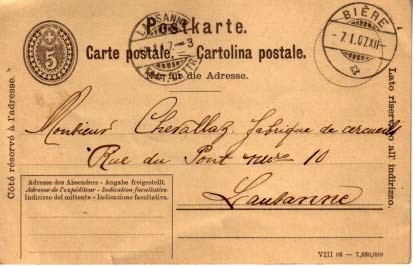 Postkarte.
Carte postale. Cartolina postale.
Nur für die Adresse.
5
LAUSANNE
BIÈRE
- 7. I. 07. XII -
Côté réservé à l'adresse.
Lato riservato all' indirizzo.
Monsieur Chevallaz, fabrique de cercueils
Rue du Pont neuve 10
Lausanne
Adresse des Absenders - Angabe freigestellt.
Adresse de l'expéditeur - Indication facultative.
Indirizzo del mittente - Indicazione facoltativa.
VIII 06 — 7,680,000